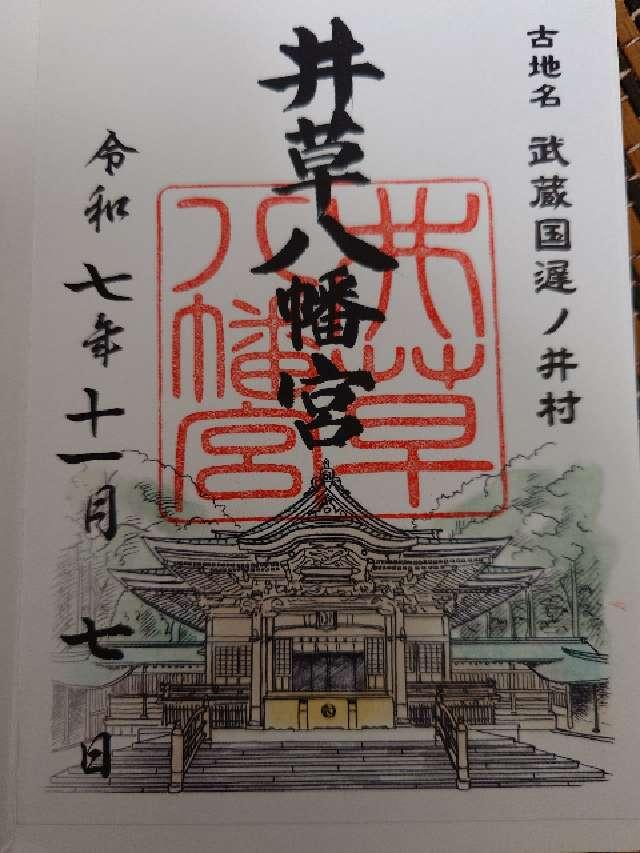 古地名 武蔵国遅ノ井村
井草八幡宮
井草八幡宮
令和七年十一月七日